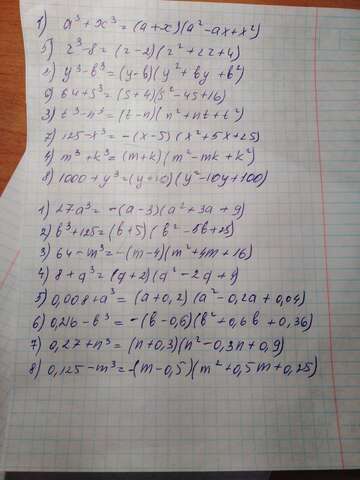 1) a³+x³ = (a+x)(a²-ax+x²)
5) z³-8 = (z-2)(z²+2z+4)
2) y³-b³ = (y-b)(y²+by+b²)
6) 64+s³ = (s+4)(s²-4s+16)
3) t³-n³ = (t-n)(n²+nt+t²)
7) 125-x³ = -(x-5)(x²+5x+25)
4) m³+k³ = (m+k)(m²-mk+k²)
8) 1000+y³ = (y+10)(y²-10y+100)
1) 27a³ = -(a-3)(a²+3a+9)
2) b³+125 = (b+5)(b²-5b+25)
3) 64-m³ = -(m-4)(m²+4m+16)
4) 8+q³ = (q+2)(q²-2q+4)
5) 0,008+a³ = (a+0,2)(a²-0,2a+0,04)
6) 0,216-b³ = -(b-0,6)(b²+0,6b+0,36)
7) 0,27+n³ = (n+0,3)(n²-0,3n+0,9)
8) 0,125-m³ = -(m-0,5)(m²+0,5m+0,25)